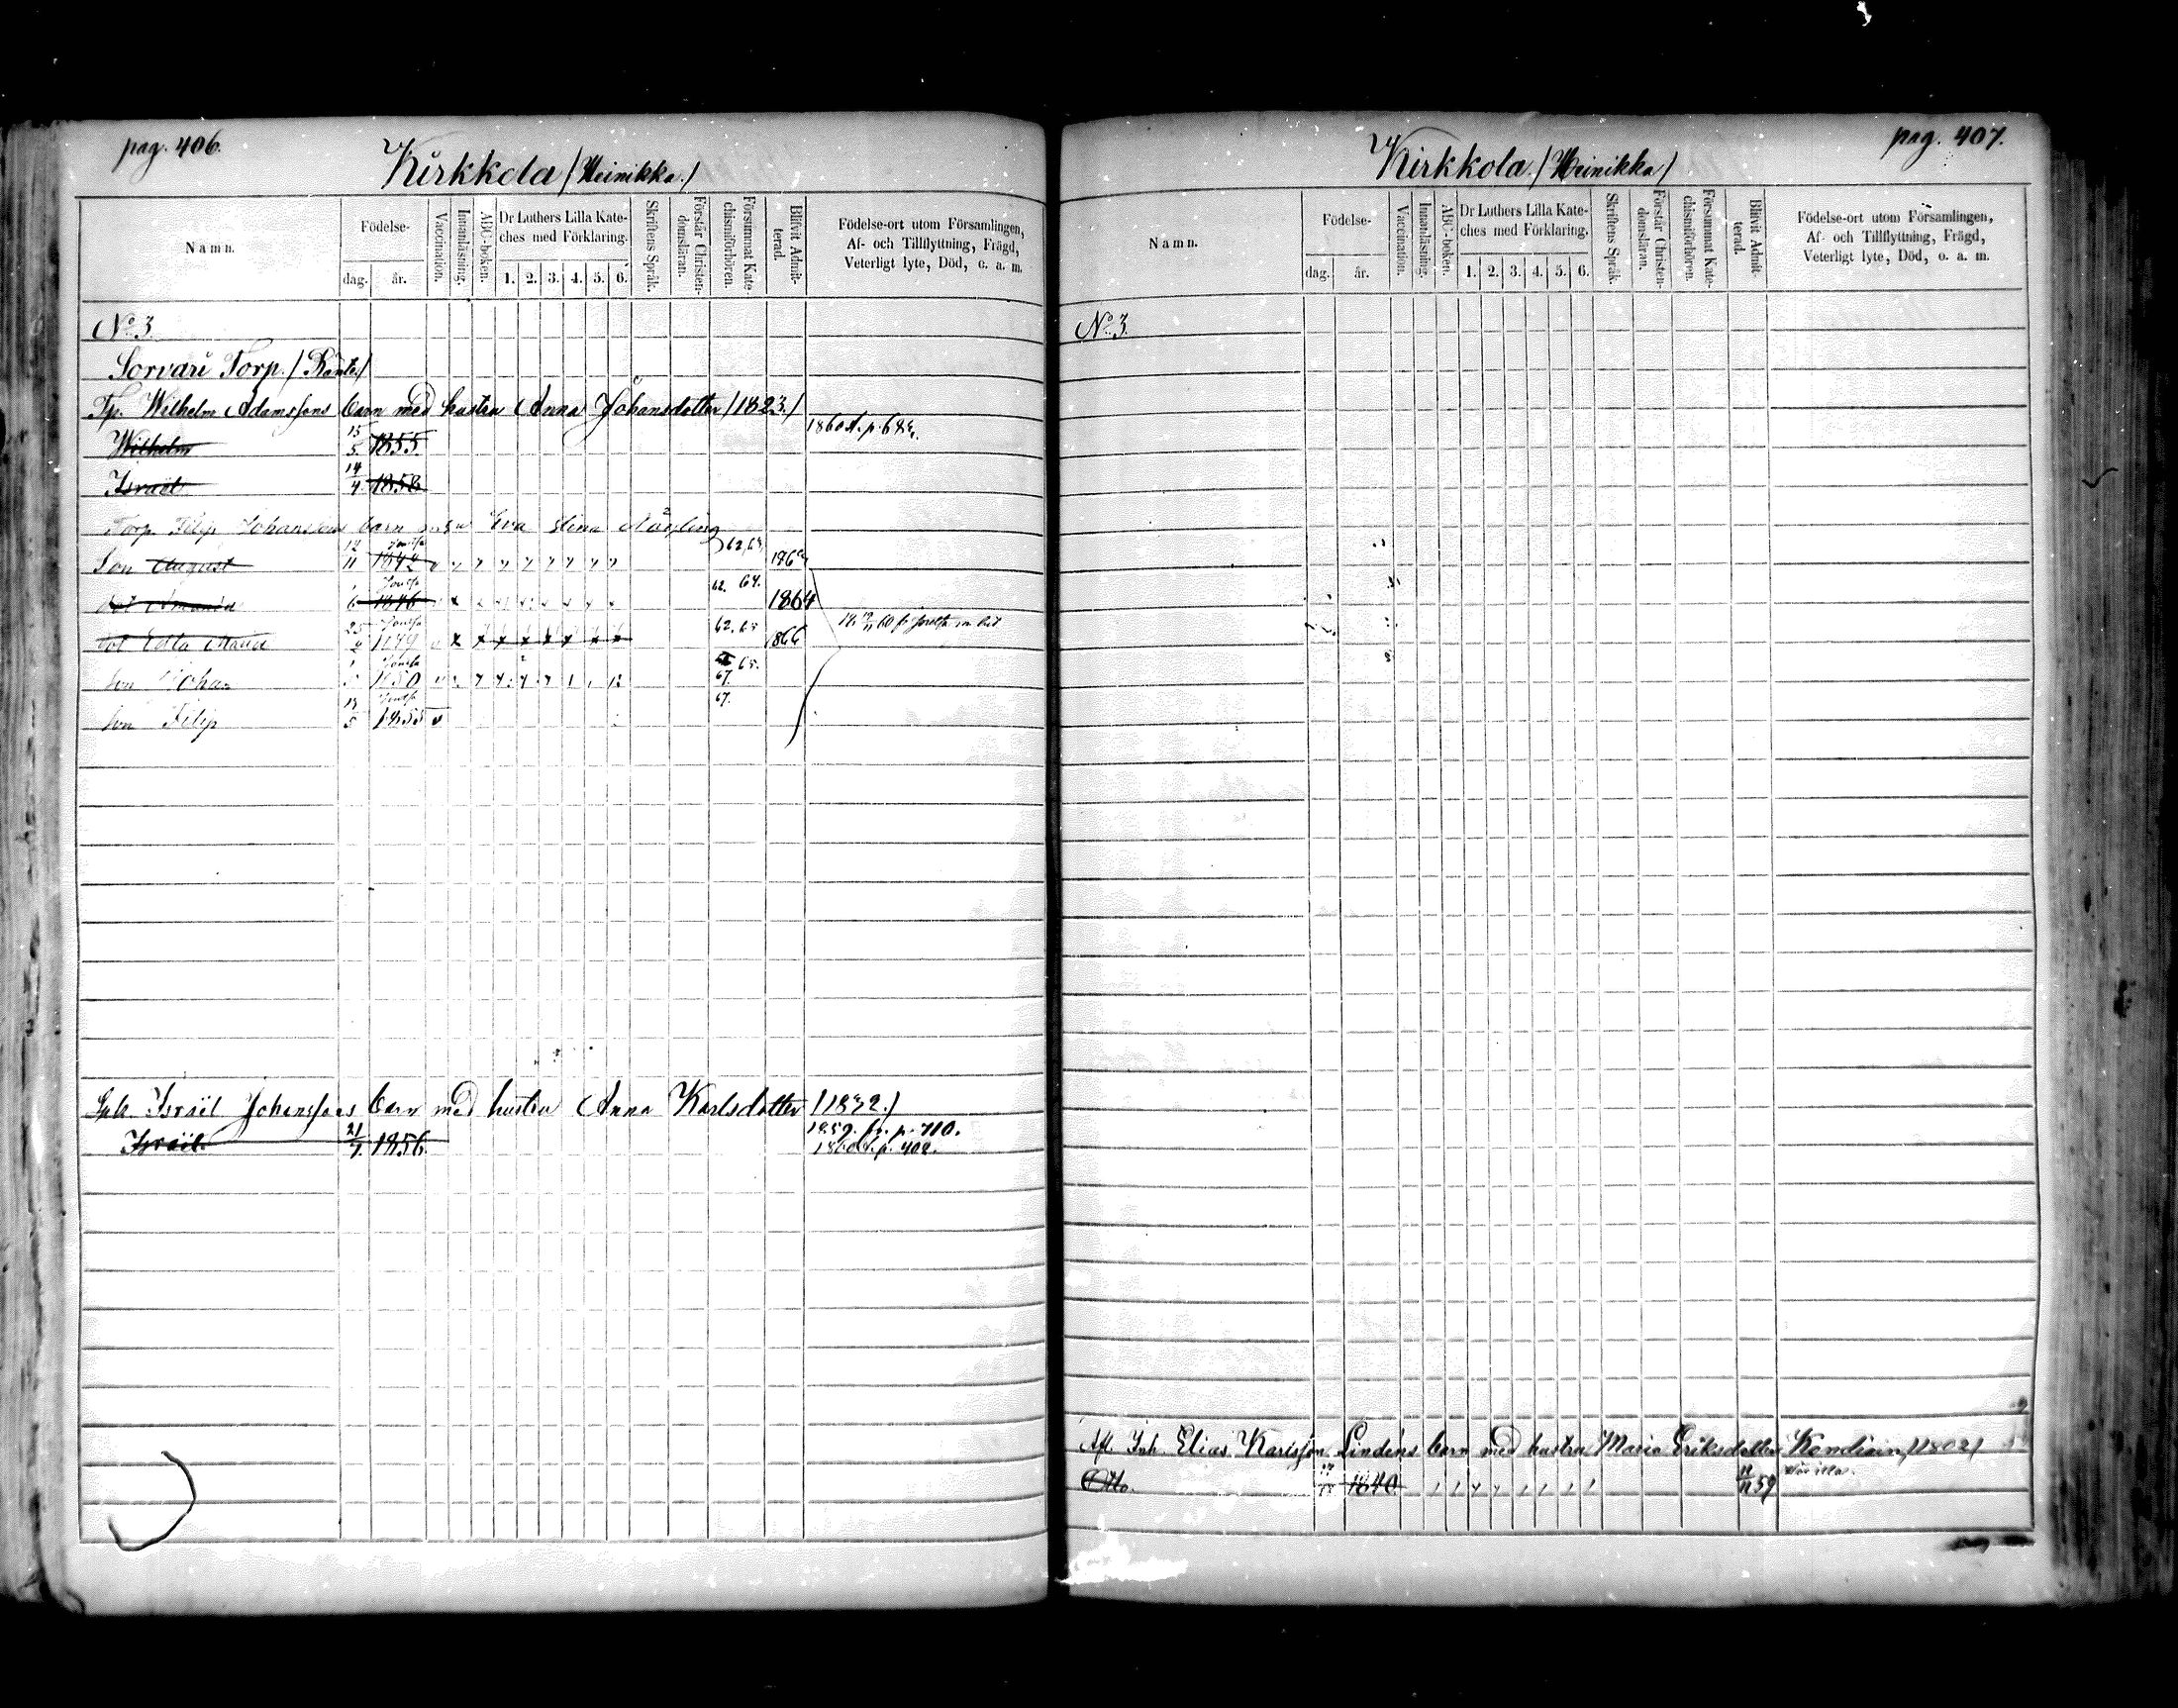 pag. 406.
Kirkkola /Heinikka./
Namn.
Födelse-
dag.
år.
Vaccination.
Innanläsning.
ABC-boken.
Dr Luthers Lilla Kate-
ches med Förklaring.
1. 2. 3. 4. 5. 6.
Skriftens Språk.
Förstår Christen-
domsläran.
Försummat Kate-
chismiförhören.
Blifvit Admit-
terad.
Födelse-ort utom Församlingen,
Af- och Tillflyttning, Frägd,
Veterligt lyte, Död, o. a. m.
No 3.
Sorvari Torp.
Tp. Wilhelm Adamssons barn med hustru Anna Johansdotter /1823./
Wilhelm 15/5 1855
Israël 14/4 1858
Torp. Filip Johanssons barn Eva Stina
Son August 12/11 1842 62, 64
6 1846 62. 64. 1864
Edla Maria 25 1849 62. 65 1866
Son Johan 1850 65. 67.
Son Filip 13/5 1855 67.
Israël Johanssons barn med hustru Anna Karlsdotter /1832./
Israël 21/7 1856. 1859. fr. p. 710.
pag. 407.
Kirkkola. /Heinikka/
Namn.
Födelse-
dag.
år.
Vaccination.
Innanläsning.
ABC-boken.
Dr Luthers Lilla Kate-
ches med Förklaring.
1. 2. 3. 4. 5. 6.
Skriftens Språk.
Förstår Christen-
domsläran.
Försummat Kate-
chismiförhören.
Blifvit Admit-
terad.
Födelse-ort utom Församlingen,
Af- och Tillflyttning, Frägd,
Veterligt lyte, Död, o. a. m.
No 3.
Afl. Inh. Elias Karlsson Lindéns barn med hustru Maria Eriksdotter /1802/
Otto. 1840 59